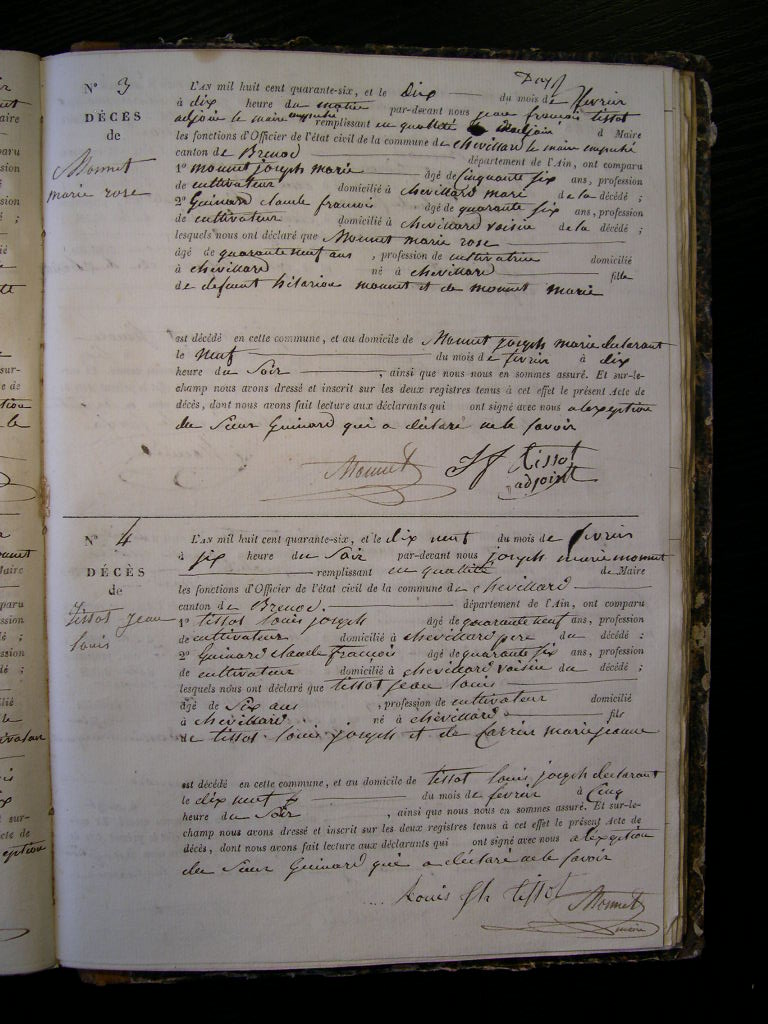 N° 3
DÉCÈS
de
Monnet
marie rose
L'AN mil huit cent quarante-six, et le dix du mois de février
à dix heure du matin par-devant nous jean françois tissot
adjoin le maire empeché remplissant en quallité adjoin d Maire
les fonctions d'Officier de l'état civil de la commune de chevillard le maire empeché
canton de Brenod département de l'Ain, ont comparu
1° monnet joseph marie âgé de cinquante six ans, profession
de cultivateur domicilié à chevillard mari de la décédé ;
2° Guinard claude francois âgé de quarante six ans, profession
de cultivateur domicilié à chevillard voisin de la décédé ;
lesquels nous ont déclaré que Monnet marie rose
âgé de quarante neuf ans , profession de cultivatrice domicilié
à chevillard né à chevillard fille
de defunt hilarion monnet et de monnet marie
est décédé en cette commune, et au domicile de Monnet joseph marie declarant
le neuf du mois de fevrier à dix
heure du Soir , ainsi que nous nous en sommes assuré. Et sur-le-
champ nous avons dressé et inscrit sur les deux registres tenus à cet effet le présent Acte de
décès, dont nous avons fait lecture aux déclarants qui ont signé avec nous a lexeption
du Sieur Guinard qui a déclaré ne le savoir
Monnet tissot
adjoint
N° 4
DÉCÈS
de
tissot jean
louis
L'AN mil huit cent quarante-six, et le dix neuf du mois de fevrier
à six heure du Soir par-devant nous joseph marie monnet
remplissant en quallité de Maire
les fonctions d'Officier de l'état civil de la commune de chevillard
canton de Brenod. département de l'Ain, ont comparu
1° tissot louis joseph âgé de quarante neuf ans, profession
de cultivateur domicilié à chevillard pere du décédé ;
2° Guinard claude francois âgé de quarante six ans, profession
de cultivateur domicilié à chevillard voisin du décédé ;
lesquels nous ont déclaré que tissot jean louis
âgé de Six ans , profession de cultivateur domicilié
à chevillard né à chevillard fils
de tissot louis joseph et de marie jeanne
est décédé en cette commune, et au domicile de tissot louis joseph declarant
le dix neuf du mois de fevrier à cinq
heure du Soir , ainsi que nous nous en sommes assuré. Et sur-le-
champ nous avons dressé et inscrit sur les deux registres tenus à cet effet le présent Acte de
décès, dont nous avons fait lecture aux déclarants qui ont signé avec nous a lexeption
du Sieur Guinard qui a déclaré ne le savoir
Louis jh tissot Monnet
maire